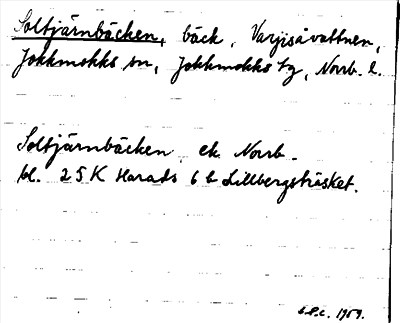 Soltjärnbäcken, bäck, Varjisåvattnen,
Jokkmokks sn, Jokkmokks tg, Norrb. l.
Soltjärnbäcken ek. Norrb.
bl. 25 K Harads 6 b Lillbergsträsket.
1959.